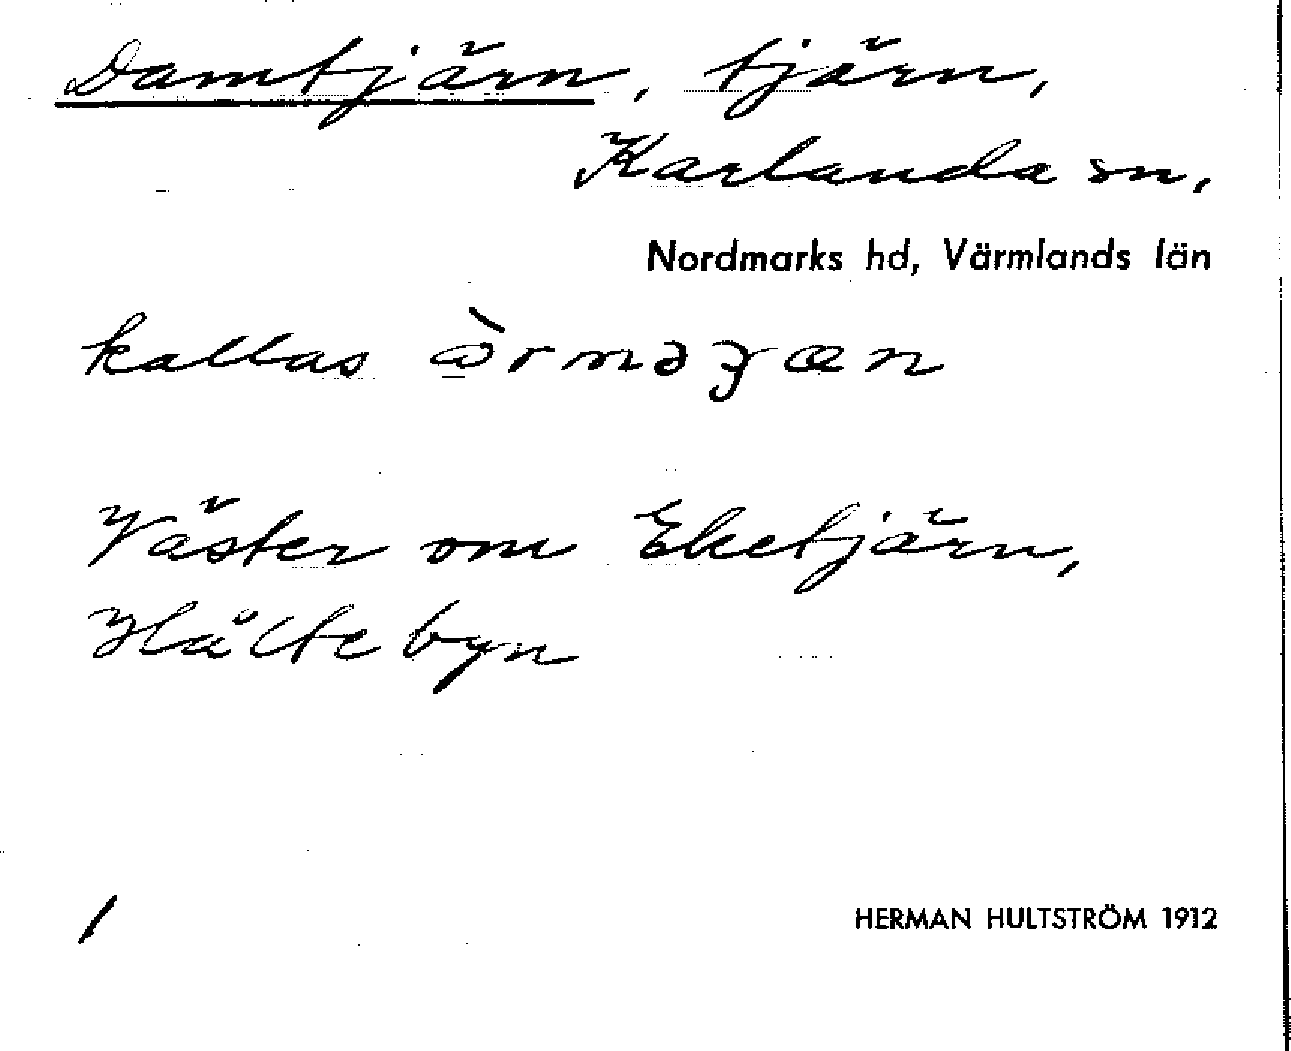 Damtjärn, tjärn,
Karlanda sn,
Nordmarks hd, Värmlands län
kallas
Väster om Eketjärn,
Hältebyn
1
HERMAN HULTSTRÖM 1912